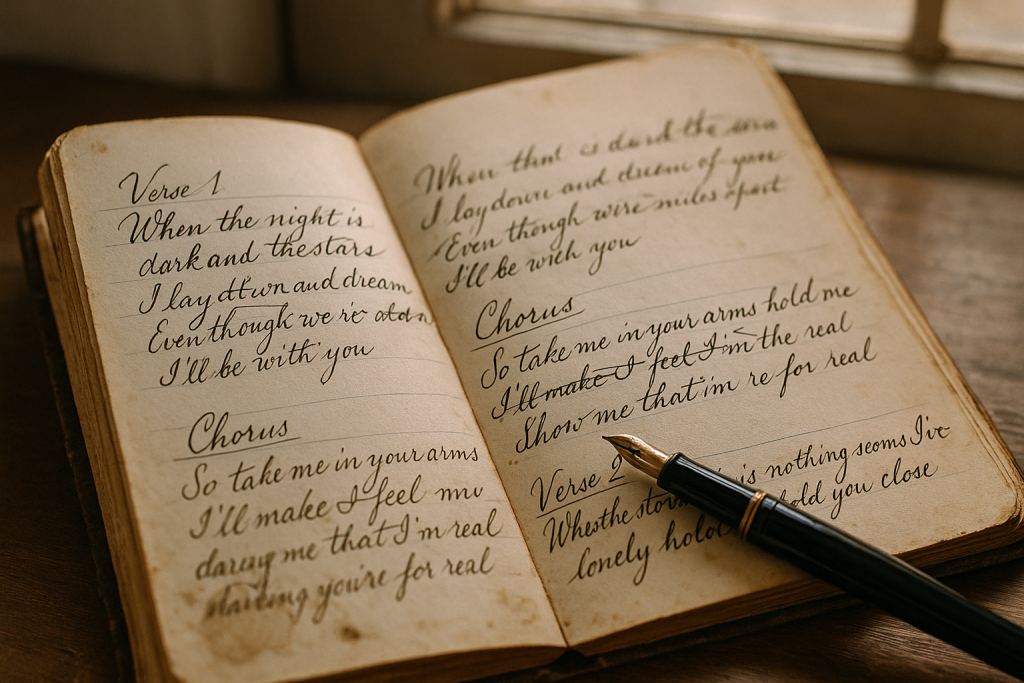 Verse 1
When the night is
dark and thestars
I lay down and dream
Even though we're
I'll be with you
Chorus
So take me in your arms
I'll make I feel
me that I'm real
you're for real
When that is the
I lay down and dream of your
Even though we're miles apart
I'll be with you
Chorus
So take me in your arms hold me
I'll make I feel I'm the real
Show me that im re for real
Verse 2
is nothing seems I've
Whesthe
lonely hold you close